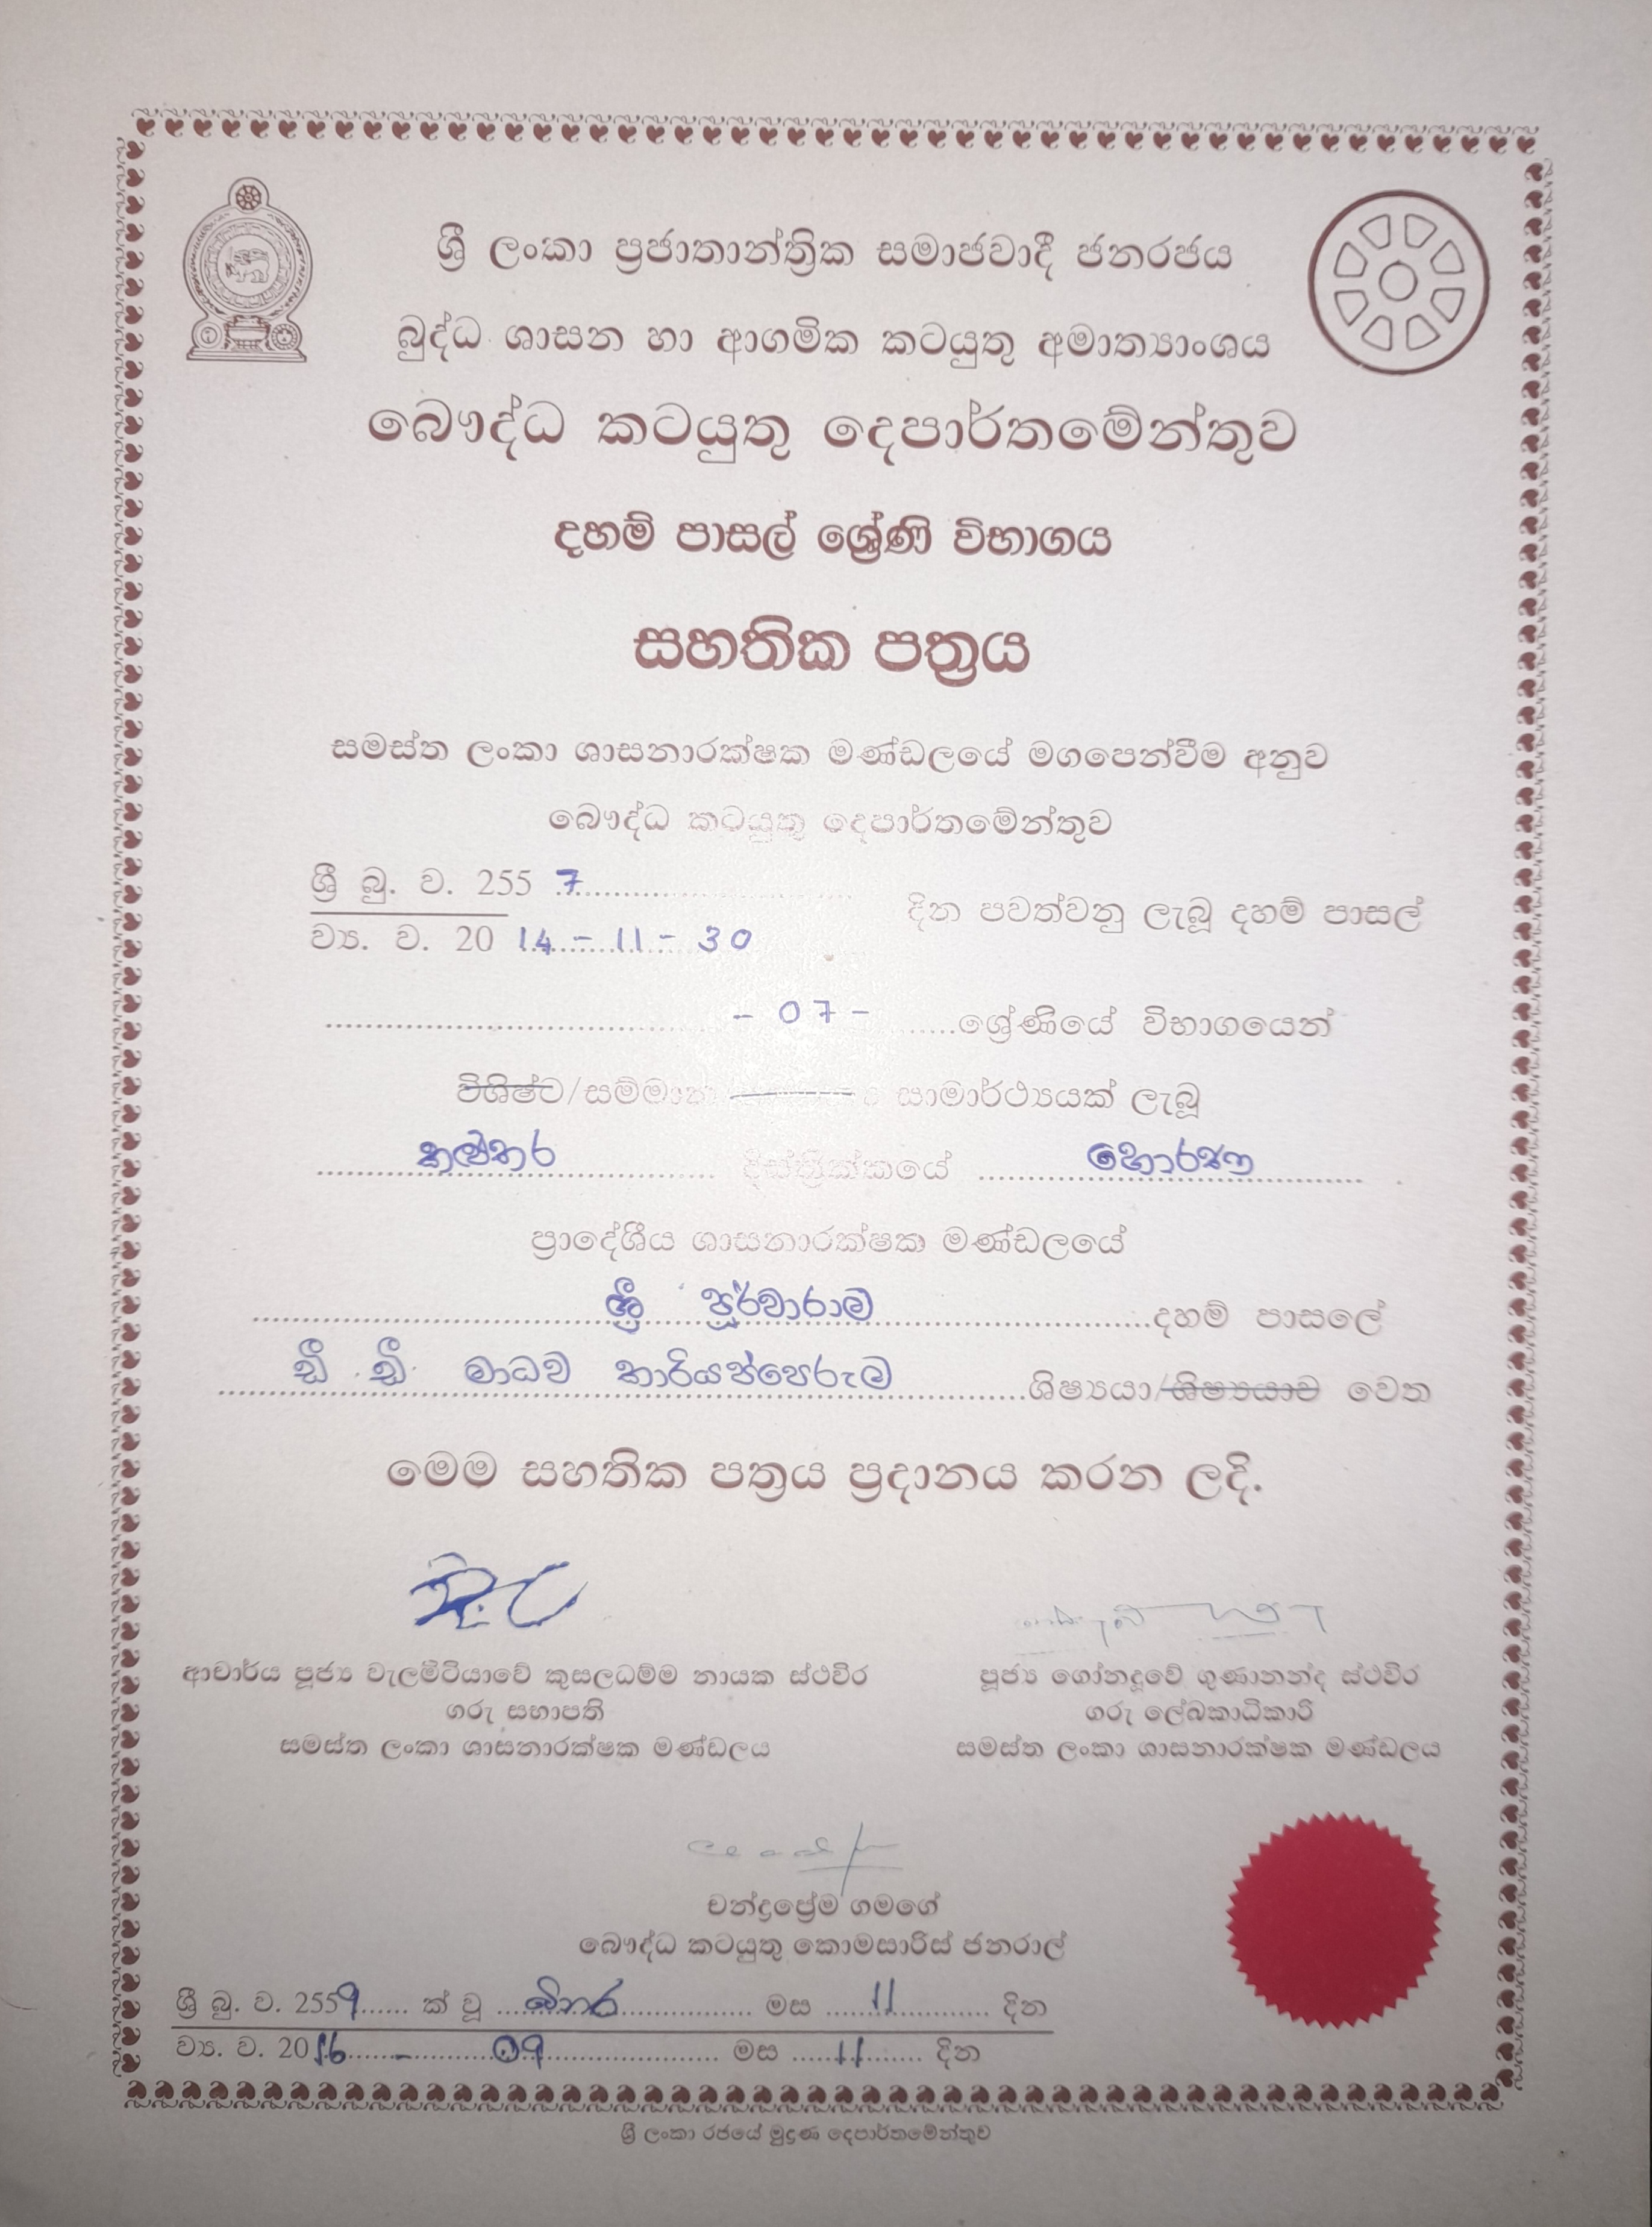 ශ්‍රී ලංකා ප්‍රජාතාන්ත්‍රික සමාජවාදී ජනරජය
බුද්ධ ශාසන හා ආගමික කටයුතු අමාත්‍යාංශය
බෞද්ධ කටයුතු දෙපාර්තමේන්තුව
දහම් පාසල් ශ්‍රේණි විභාගය
සහතික පත්‍රය
සමස්ත ලංකා ශාසනාරක්ෂක මණ්ඩලයේ මගපෙන්වීම අනුව
බෞද්ධ කටයුතු දෙපාර්තමේන්තුව
ශ්‍රී බු. ව. 255 7
ව්‍ය. ව. 20 14 - 11 - 30
දින පවත්වනු ලැබූ දහම් පාසල්
- 07 - ශ්‍රේණියේ විභාගයෙන්
විශිෂ්ට/සම්මාන සාමාර්ථ්‍යයක් ලැබූ
කළුතර දිස්ත්‍රික්කයේ හොරණ
ප්‍රාදේශීය ශාසනාරක්ෂක මණ්ඩලයේ
ශ්‍රී පූර්වාරාම දහම් පාසලේ
ඩී. ඩී. මාධව කාරියප්පෙරුම ශිෂ්‍යයා/ශිෂ්‍යයාව වෙත
මෙම සහතික පත්‍රය ප්‍රදානය කරන ලදි.
ආචාර්ය පූජ්‍ය වැලමිටියාවේ කුසලධම්ම නායක ස්ථවිර
ගරු සභාපති
සමස්ත ලංකා ශාසනාරක්ෂක මණ්ඩලය
පූජ්‍ය ගෝනදූවේ ගුණානන්ද ස්ථවිර
ගරු ලේඛකාධිකාරි
සමස්ත ලංකා ශාසනාරක්ෂක මණ්ඩලය
චන්ද්‍රප්‍රේම ගමගේ
බෞද්ධ කටයුතු කොමසාරිස් ජනරාල්
ශ්‍රී බු. ව. 2559 ක් වූ බිනර මස 11 දින
ව්‍ය. ව. 2016 - 09 මස 11 දින
ශ්‍රී ලංකා රජයේ මුද්‍රණ දෙපාර්තමේන්තුව